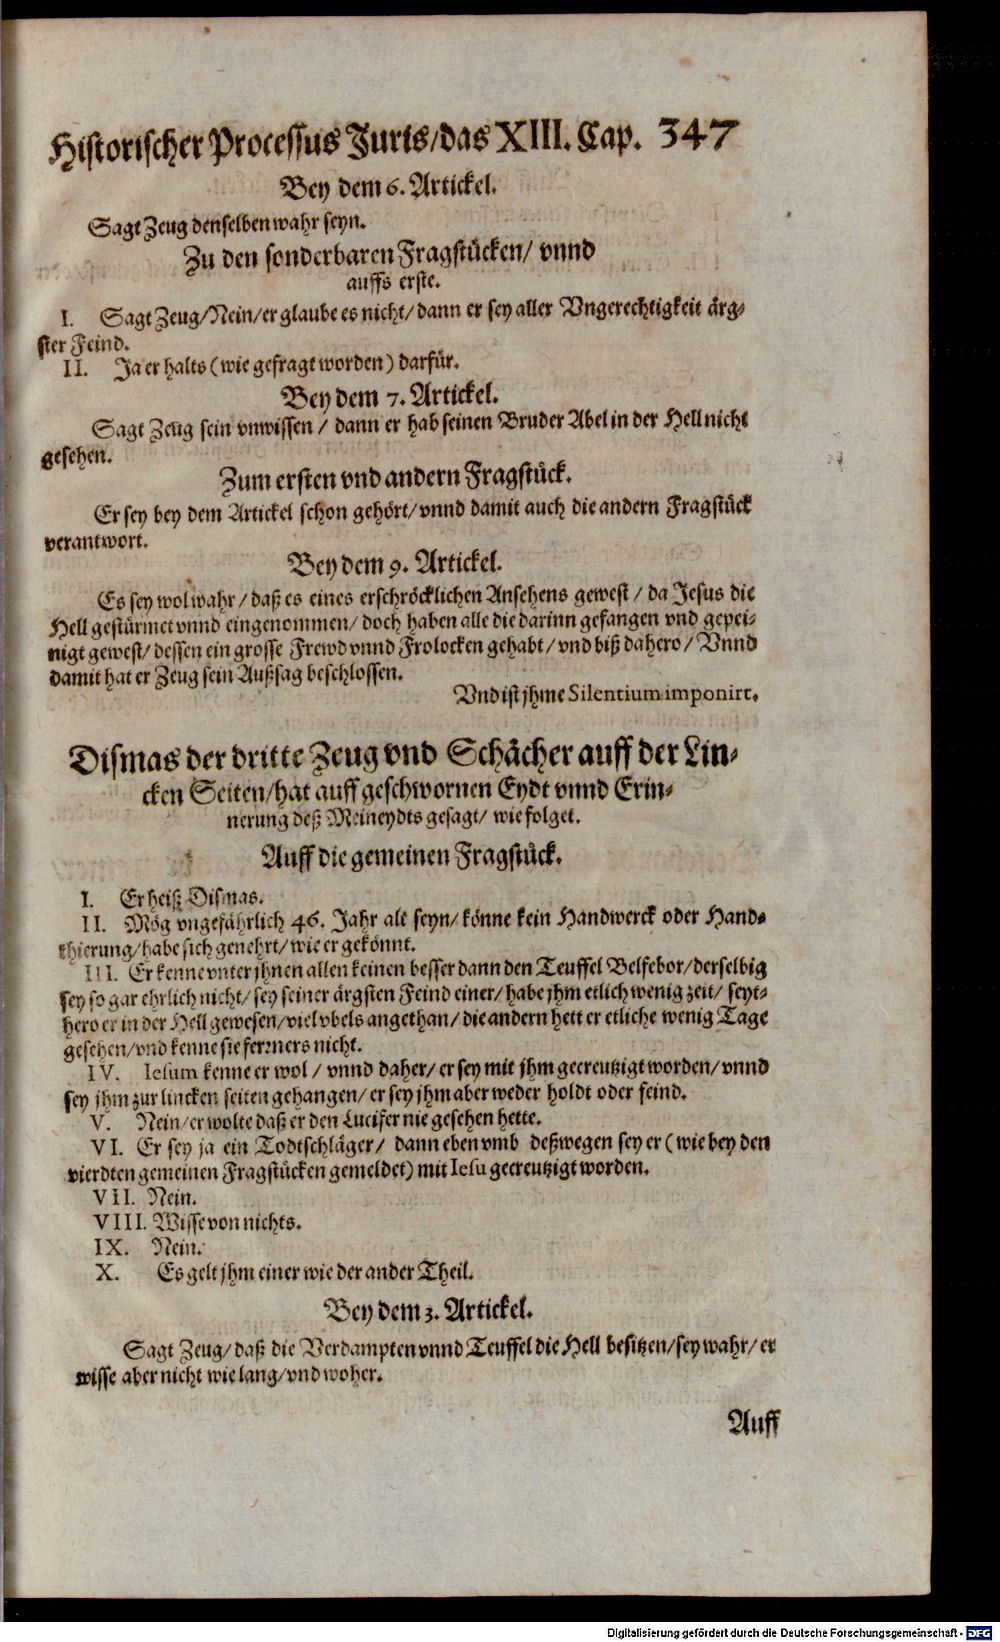 Historischer Processus Juris/das XIII. Cap. 347
Bey dem 6. Artickel.
Sagt Zeug denselben wahr seyn.
Zu den sonderbaren Fragstücken/ vnnd
auffs erste.
I. Sagt Zeug/Nein/er glaube es nicht/dann er sey aller Vngerechtigkeit ärg-
ster Feind.
II. Ja er halts (wie gefragt worden) darfür.
Bey dem 7. Artickel.
Sagt Zeug sein vnwissen / dann er hab seinen Bruder Abel in der Hell nicht
gesehen.
Zum ersten vnd andern Fragstück.
Er sey bey dem Artickel schon gehört/vnnd damit auch die andern Fragstück
verantwort.
Bey dem 9. Artickel.
Es sey wol wahr / daß es eines erschröcklichen Ansehens gewest / da Jesus die
Hell gestürmet vnnd eingenommen/ doch haben alle die darinn gefangen vnd gepei-
nigt gewest/ dessen ein grosse Frewd vnnd Frolocken gehabt/ vnd biß dahero / Vnnd
damit hat er Zeug sein Außsag beschlossen.
Vnd ist jhme Silentium imponirt.
Dismas der dritte Zeug vnd Schächer auff der Lin-
cken Seiten/hat auff geschwornen Eydt vnnd Erin-
nerung deß Meineydts gesagt/ wie folget.
Auff die gemeinen Fragstück.
I. Er heiß Dismas.
II. Mög vngefährlich 46. Jahr alt seyn/ könne kein Handwerck oder Hand-
thierung/habe sich genehrt/wie er gekönnt.
III. Er kenne vnter jhnen allen keinen besser dann den Teuffel Belfebor/derselbig
sey so gar ehrlich nicht/ sey seiner ärgsten Feind einer/ habe jhm etlich wenig zeit/ seyt-
hero er in der Hell gewesen/viel vbels angethan/ die andern hett er etliche wenig Tage
gesehen/vnd kenne sie ferrners nicht.
IV. Iesum kenne er wol / vnnd daher/ er sey mit jhm gecreutzigt worden/ vnnd
sey jhm zur lincken seiten gehangen/ er sey jhm aber weder holdt oder feind.
V. Nein/er wolte daß er den Lucifer nie gesehen hette.
VI. Er sey ja ein Todtschläger/ dann eben vmb deßwegen sey er (wie bey den
vierdten gemeinen Fragstücken gemeldet) mit Iesu gecreutzigt worden.
VII. Nein.
VIII. Wisse von nichts.
IX. Nein.
X. Es gelt jhm einer wie der ander Theil.
Bey dem 3. Artickel.
Sagt Zeug/ daß die Verdampten vnnd Teuffel die Hell besitzen/sey wahr/ er
wisse aber nicht wie lang/vnd woher.
Auff
Digitalisierung gefördert durch die Deutsche Forschungsgemeinschaft - DFG